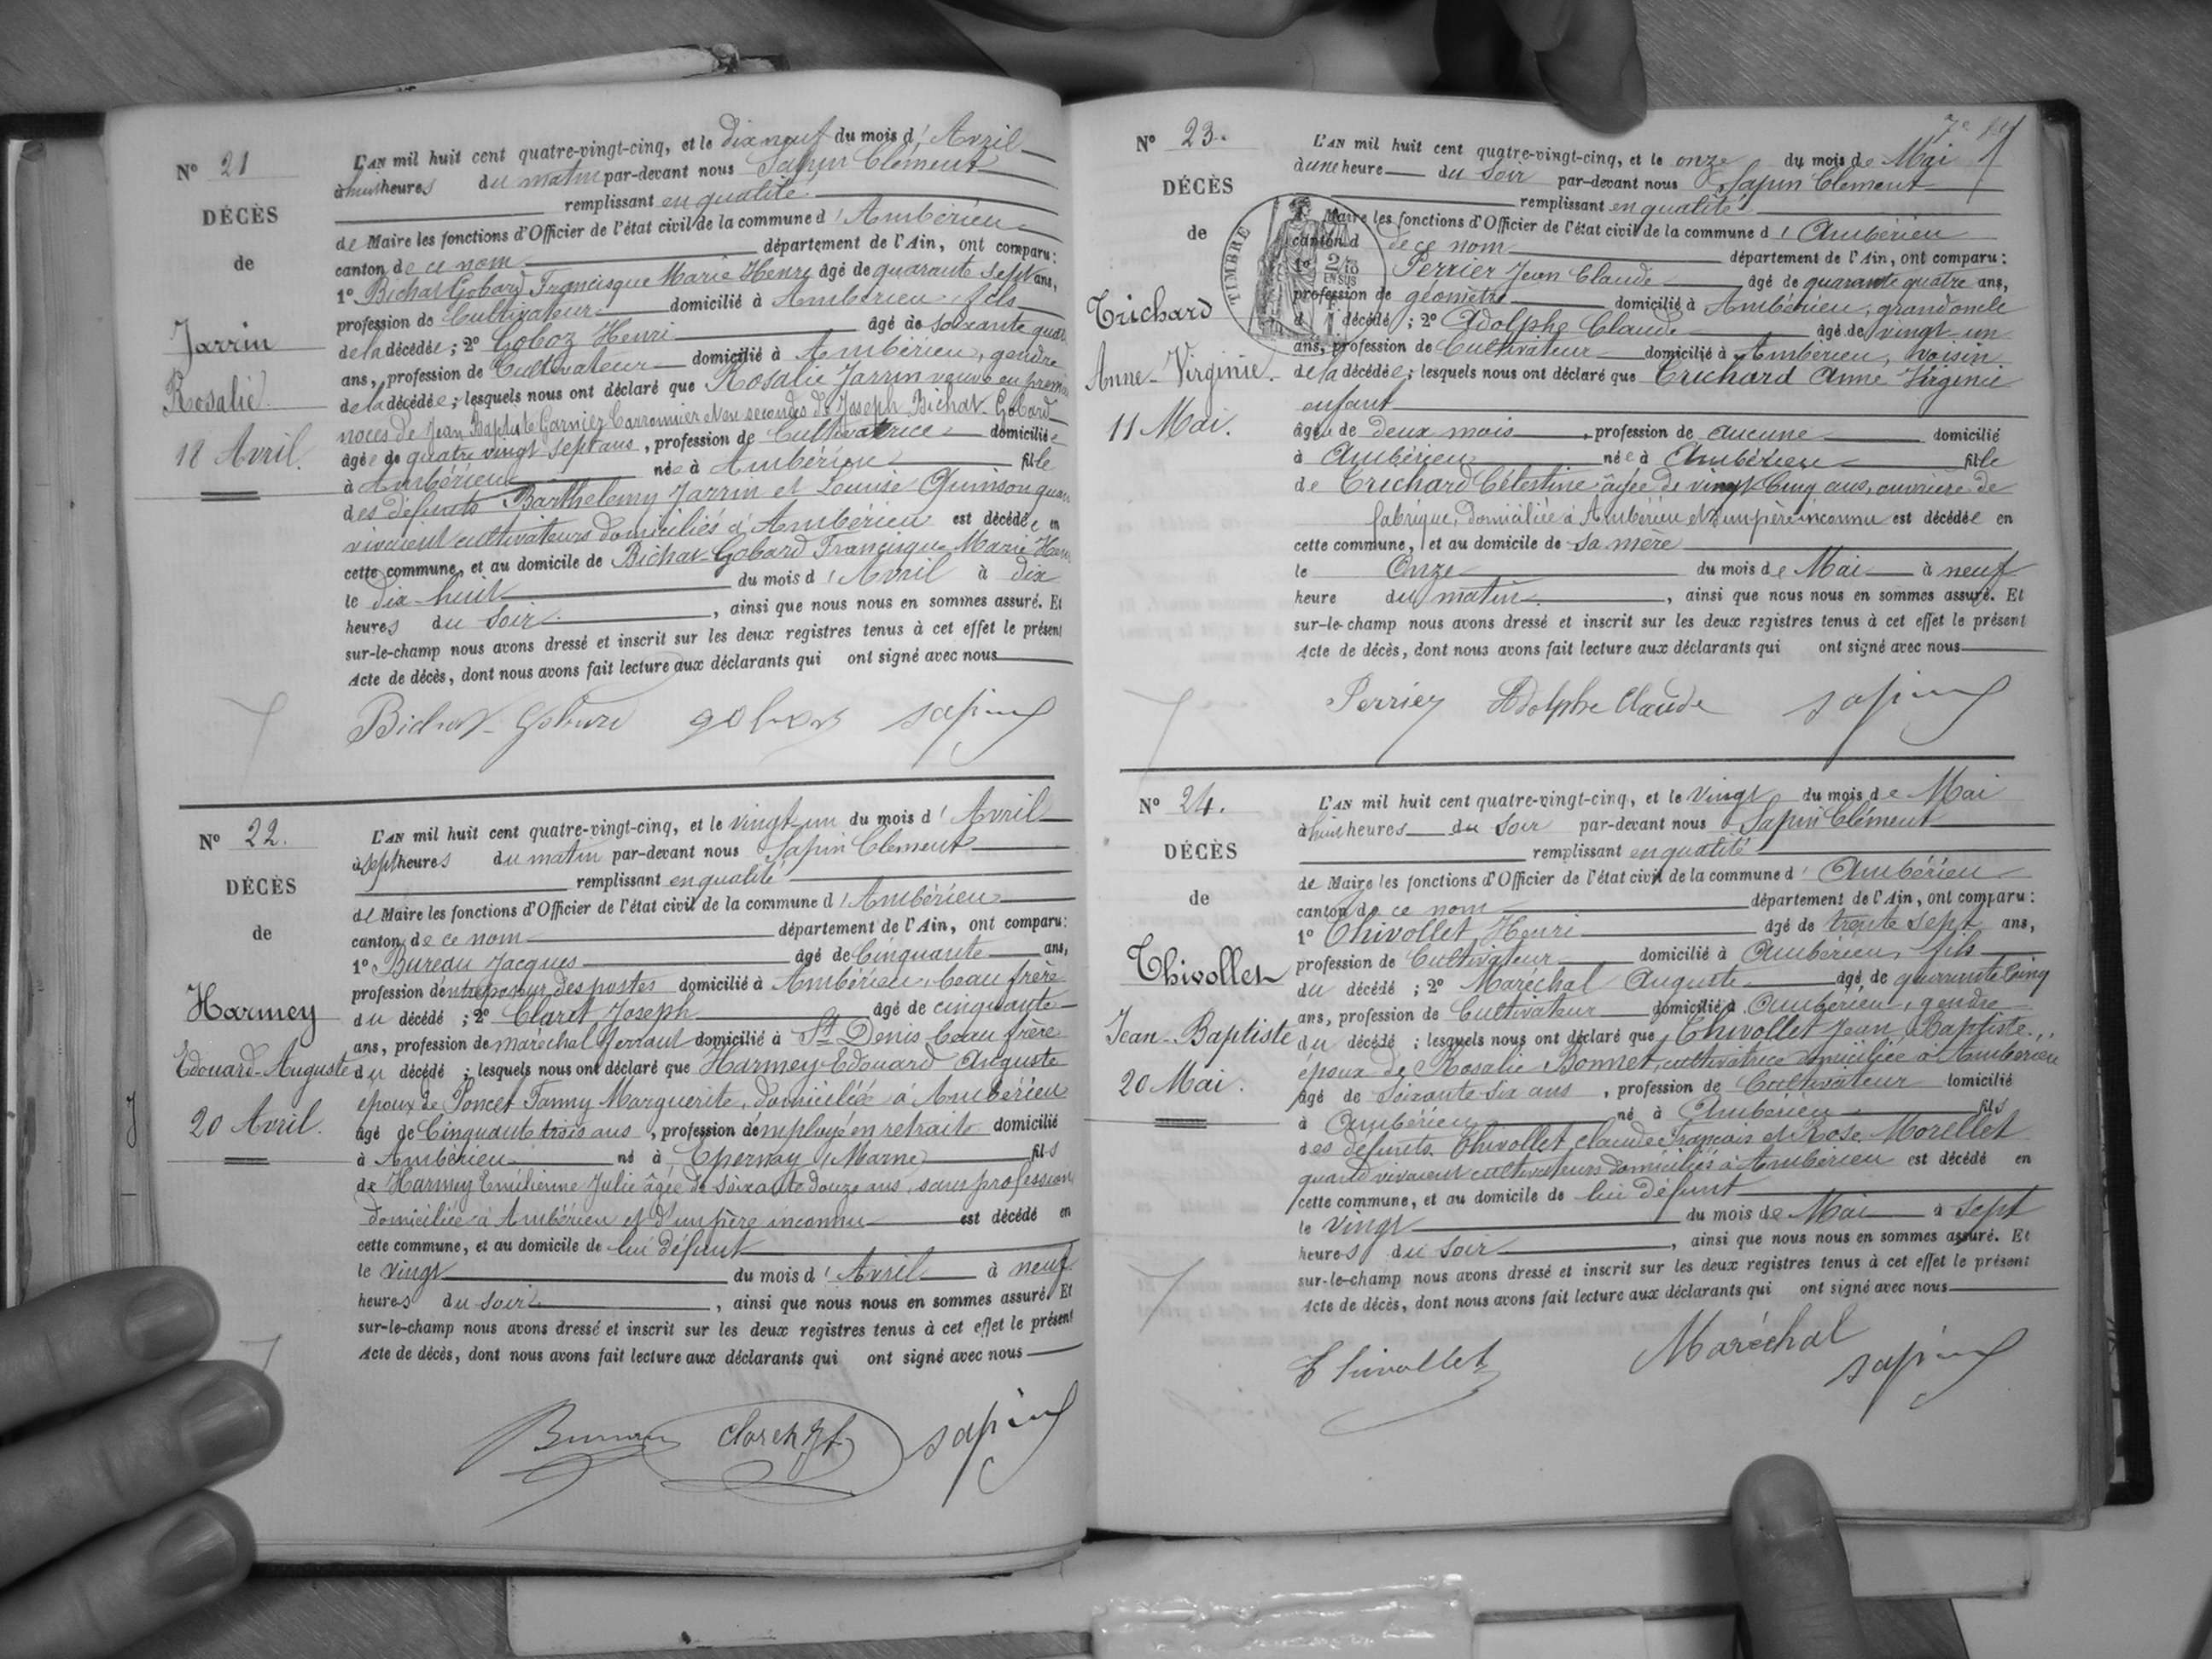 N° 21
DÉCÈS
de
Jarrin
Rosalie
18 Avril.
L'AN mil huit cent quatre-vingt-cinq, et le dix neuf du mois d'Avril
à huit heures du matin par-devant nous Sapin Clément
remplissant en qualité
de Maire les fonctions d'Officier de l'état civil de la commune d'Ambérieu
canton de ce nom département de l'Ain, ont comparu:
1° Bichat Gobard Francisque Marie Henri âgé de quarante sept ans,
profession de Cultivateur domicilié à Ambérieu, fils
de la décédée; 2° Goboz Henri âgé de soixante quat
ans, profession de Cultivateur domicilié à Ambérieu, gendre
de la décédée; lesquels nous ont déclaré que Rosalie Jarrin veuve en prem
noces de Jean Baptiste Garnier Carronnier et en secondes de Joseph Bichat-Gobard
âgée de quatre vingt sept ans, profession de Cultivatrice domiciliée
à Ambérieu née à Ambérieu fille
des défunts Barthelemy Jarrin et Louise Quinson quan
vivaient cultivateurs domiciliés à Ambérieu est décédée en
cette commune, et au domicile de Bichat-Gobard Francisque Marie Hen
le dix-huit du mois d'Avril à dix
heures du soir, ainsi que nous nous en sommes assuré. Et
sur-le-champ nous avons dressé et inscrit sur les deux registres tenus à cet effet le présent
Acte de décès, dont nous avons fait lecture aux déclarants qui ont signé avec nous
Bichat-Gobard goboz sapin
N° 22.
DÉCÈS
de
Harmey
Edouard-Auguste
20 Avril.
L'AN mil huit cent quatre-vingt-cinq, et le vingt-un du mois d'Avril
à sept heures du matin par-devant nous Sapin Clément
remplissant en qualité
de Maire les fonctions d'Officier de l'état civil de la commune d'Ambérieu
canton de ce nom département de l'Ain, ont comparu:
1° Bureau Jacques âgé de Cinquante ans,
profession d'entreposeur des postes domicilié à Ambérieu, beau frère
du décédé; 2° Claret Joseph âgé de cinquante
ans, profession de maréchal ferrant domicilié à St Denis beau frère
du décédé; lesquels nous ont déclaré que Harmey Edouard Auguste
époux de Poncet Fanny Marguerite, domiciliée à Ambérieu
âgé de Cinquante trois ans, profession d'employé en retraite domicilié
à Ambérieu né à Epernay (Marne) fils
de Harmey Emilienne Julie âgée de soixante douze ans, sans profession
domiciliée à Ambérieu et d'un père inconnu est décédé en
cette commune, et au domicile de lui défunt
le vingt du mois d'Avril à neuf
heures du soir, ainsi que nous nous en sommes assuré. Et
sur-le-champ nous avons dressé et inscrit sur les deux registres tenus à cet effet le présent
Acte de décès, dont nous avons fait lecture aux déclarants qui ont signé avec nous
Bureau Claret sapin
7e
N° 23.
DÉCÈS
de
Trichard
Anne-Virginie.
11 Mai.
TIMBRE
L'AN mil huit cent quatre-vingt-cinq, et le onze du mois de Mai
à une heure du soir par-devant nous Sapin Clément
remplissant en qualité
Maire les fonctions d'Officier de l'état civil de la commune d'Ambérieu
canton d de ce nom département de l'Ain, ont comparu:
1° Perrier Jean Claude âgé de quarante quatre ans,
profession de géomètre domicilié à Ambérieu, grand oncle
d décédé; 2° Adolphe Claude âgé de vingt-un
ans, profession de Cultivateur domicilié à Ambérieu, voisin
de la décédée; lesquels nous ont déclaré que Trichard Anne Virginie
enfant
âgée de deux mois, profession de aucune domicilié
à Ambérieu née à Ambérieu fille
de Trichard Célestine âgée de vingt Cinq ans, ouvrière de
fabrique, domiciliée à Ambérieu et d'un père inconnu est décédée en
cette commune, et au domicile de sa mère
le Onze du mois de Mai à neuf
heure du matin, ainsi que nous nous en sommes assuré. Et
sur-le-champ nous avons dressé et inscrit sur les deux registres tenus à cet effet le présent
Acte de décès, dont nous avons fait lecture aux déclarants qui ont signé avec nous
Perrier Adolphe Claude sapin
N° 24.
DÉCÈS
de
Thivollet
Jean-Baptiste
20 Mai.
L'AN mil huit cent quatre-vingt-cinq, et le Vingt du mois de Mai
à huit heures du soir par-devant nous Sapin Clément
remplissant en qualité
de Maire les fonctions d'Officier de l'état civil de la commune d'Ambérieu
canton de ce nom département de l'Ain, ont comparu:
1° Thivollet Henri âgé de trente sept ans,
profession de Cultivateur domicilié à Ambérieu, fils
du décédé; 2° Maréchal Auguste âgé de quarante Cinq
ans, profession de Cultivateur domicilié à Ambérieu, gendre
du décédé; lesquels nous ont déclaré que Thivollet Jean Baptiste,
époux de Rosalie Bonnet, cultivatrice domiciliée à Ambérieu
âgé de soixante six ans, profession de Cultivateur domicilié
à Ambérieu né à Ambérieu fils
des défunts Thivollet Claude François et Rose Morellet
quand vivaient cultivateurs domiciliés à Ambérieu est décédé en
cette commune, et au domicile de lui défunt
le Vingt du mois de Mai à sept
heures du soir, ainsi que nous nous en sommes assuré. Et
sur-le-champ nous avons dressé et inscrit sur les deux registres tenus à cet effet le présent
Acte de décès, dont nous avons fait lecture aux déclarants qui ont signé avec nous
Thivollet Maréchal sapin